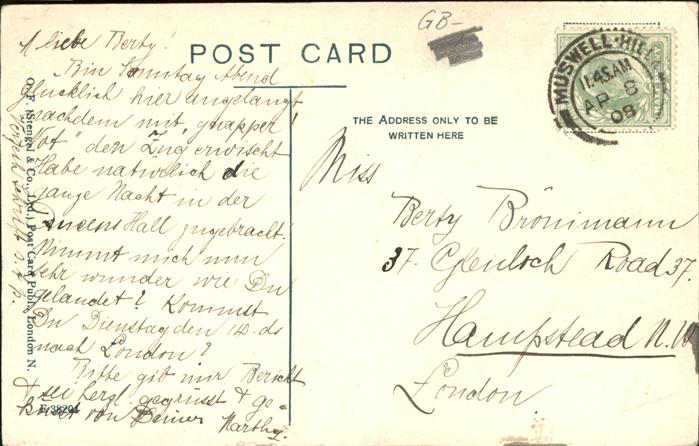 GB-
POST CARD
THE ADDRESS ONLY TO BE
WRITTEN HERE
MUSWELL·HILL
11.45.AM
AP 8
08
Miss
Berty Brönimann
37. Glenloch Road 37.
Hampstead N.W
London
Mliebe Berty!
Bin Sonntag Abend
glücklich hier angelangt
nachdem mit "knapper
Not" den Zug erwischt!
Habe natürlich die
ganze Nacht in der
Princens Hall zugebracht.
Nimmt mich nun
sehr wunder wie Du
gelandet? Kommst
Du Dienstag den 14. ds
nach London?
Bitte gib mir Bericht
& sei herzl. gegrüsst & ge-
küsst von Deiner Marthy.
O. F. Stengel & Co., Ltd., Post Card Publ., London N.
E 38204